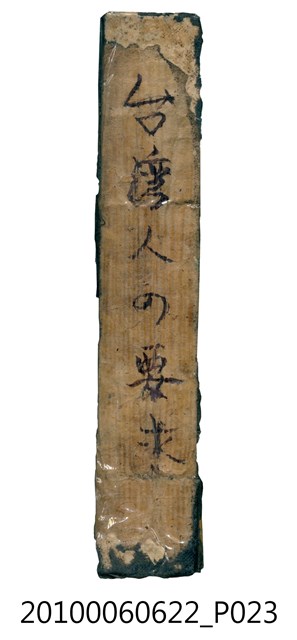 台湾人の要求
20100060622_P023